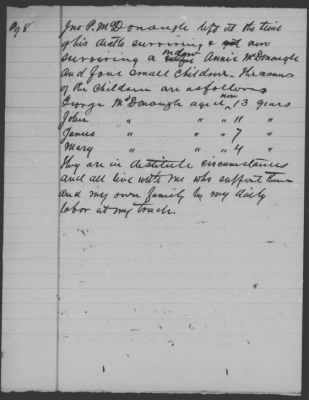 Pg 8
Jno P. McDonough left at the time
of his death surviving & now
surviving a widow Annie McDonough
and four small children. The names
of the children are as follows
George McDonough aged now 13 years
John " " " 11 "
James " " " 7 "
Mary " " " 4 "
They are in destitute circumstances
and all live with me who support them
and my own family by my daily
labor at my trade.